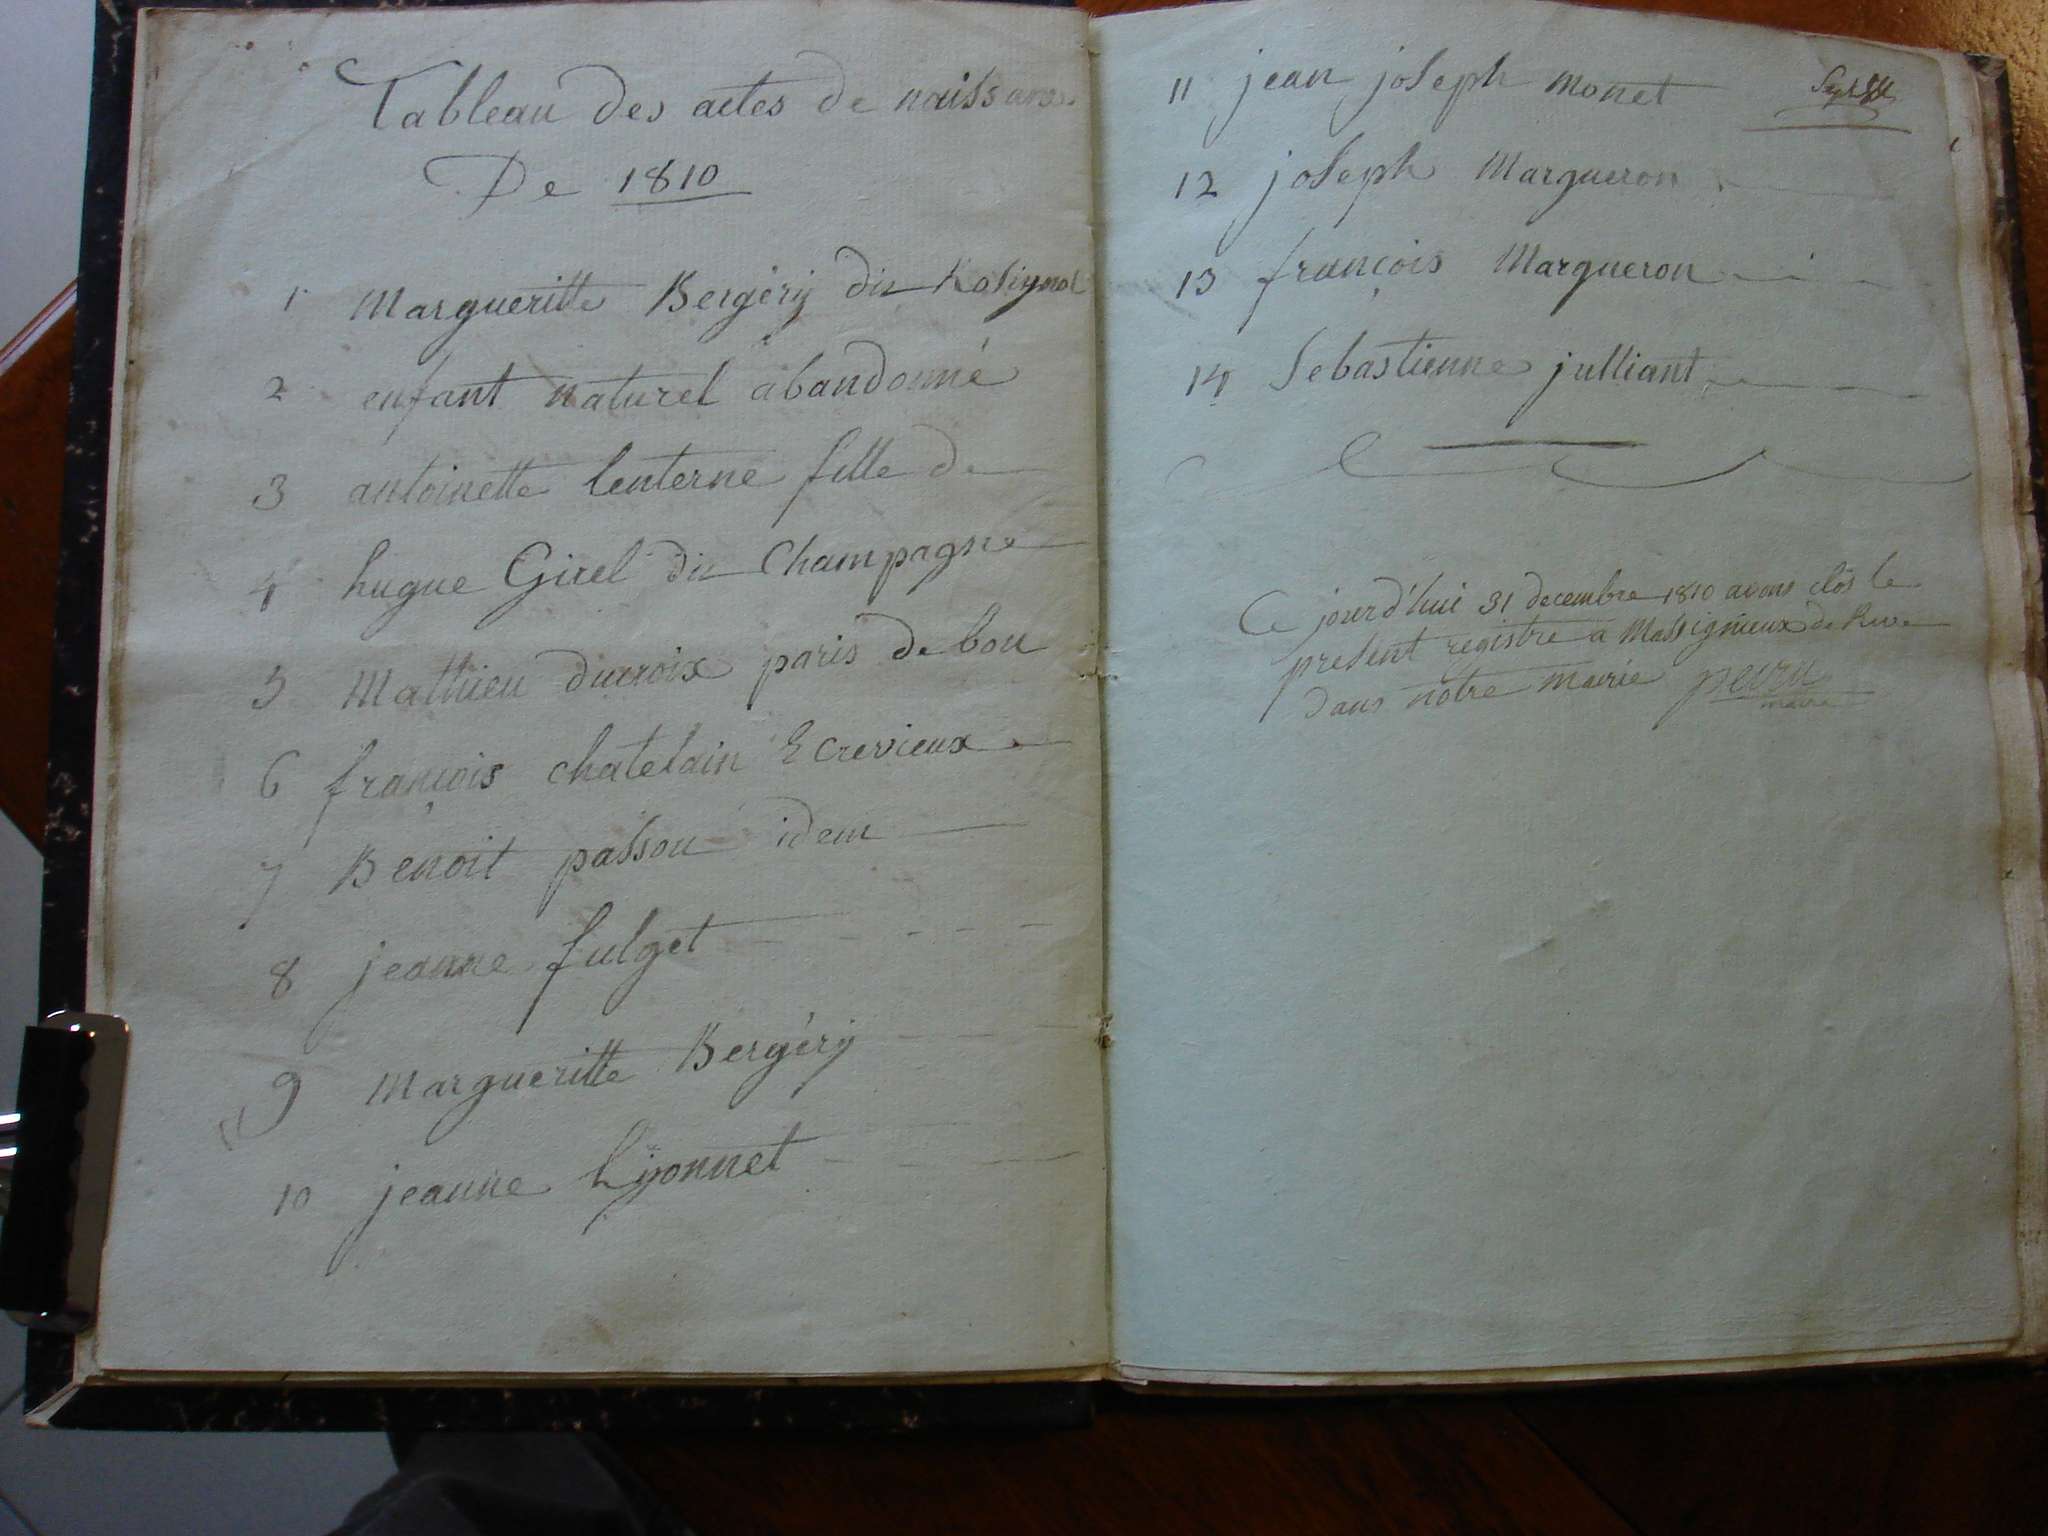 Tableau des actes de naissance
De 1810
1 Margueritte Bergérÿ dit Rosignol
2 enfant naturel abandonné
3 antoinette lenterne fille de
4 hugue Girel dit Champagne
5 Mathieu ducroix paris de bon
6 françois chatelain Ecrevieux
7 Benoit passon idem
8 jeanne fulget
9 Margueritte Bergérÿ
10 jeanne Lyonnet
11 jean joseph Monet
12 joseph Margueron
13 françois Margueron
14 Sebastienne julliant
Ce jourd'hui 31 decembre 1810 avons clos le
present registre a Massignieux de Rive
dans notre mairie
maire